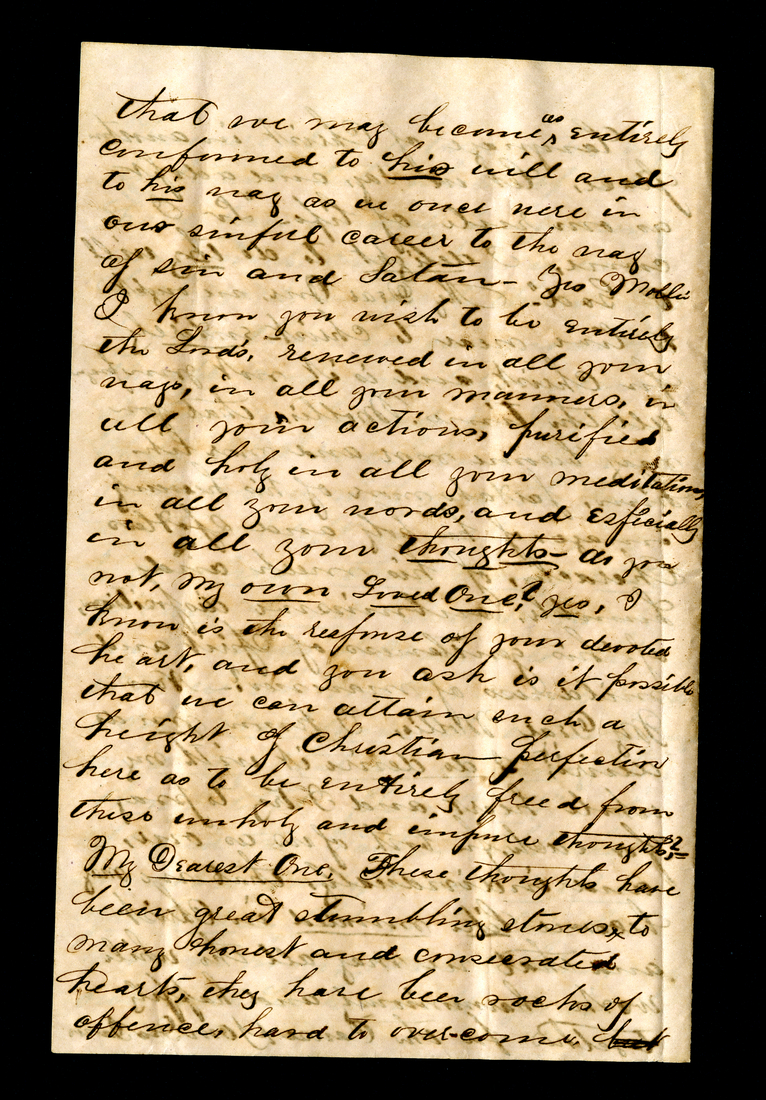 that we may become as entirely
conformed to his will and
to his way as we once were in
our sinful career to the way
of sin and Satan - Yes Mollie
I know you wish to be entirely
the Lord's, renewed in all your
ways, in all your manners, in
all your actions, purified
and holy in all your meditations,
in all your words, and especially
in all your thoughts - do you
not, my own Loved One? yes, I
know is the response of your devoted
heart, and you ask is it possible
that we can attain such a
height of Christian perfection
here as to be entirely freed from
these unholy and impure thoughts?-
My Dearest One. These thoughts have
been great stumbling stones, to
many honest and consecrated
hearts, they have been rocks of
offence, hard to over-come, but